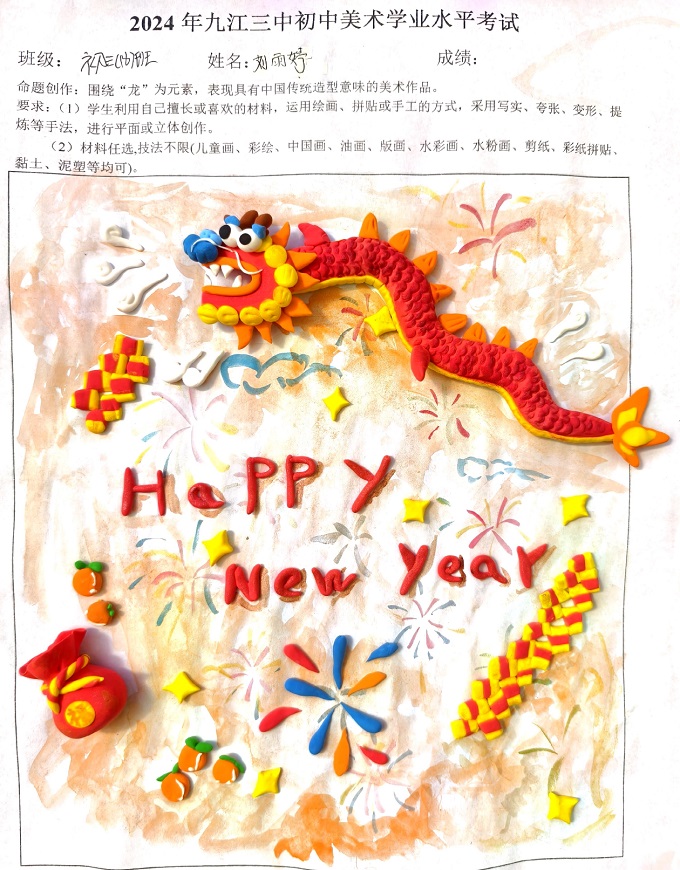 2024 年九江三中初中美术学业水平考试
班级： 姓名：刘雨婷 成绩：
命题创作：围绕“龙”为元素，表现具有中国传统造型意味的美术作品。
要求：（1）学生利用自己擅长或喜欢的材料，运用绘画、拼贴或手工的方式，采用写实、夸张、变形、提
炼等手法，进行平面或立体创作。
（2）材料任选,技法不限(儿童画、彩绘、中国画、油画、版画、水彩画、水粉画、剪纸、彩纸拼贴、
黏土、泥塑等均可)。
HaPPY
New Year